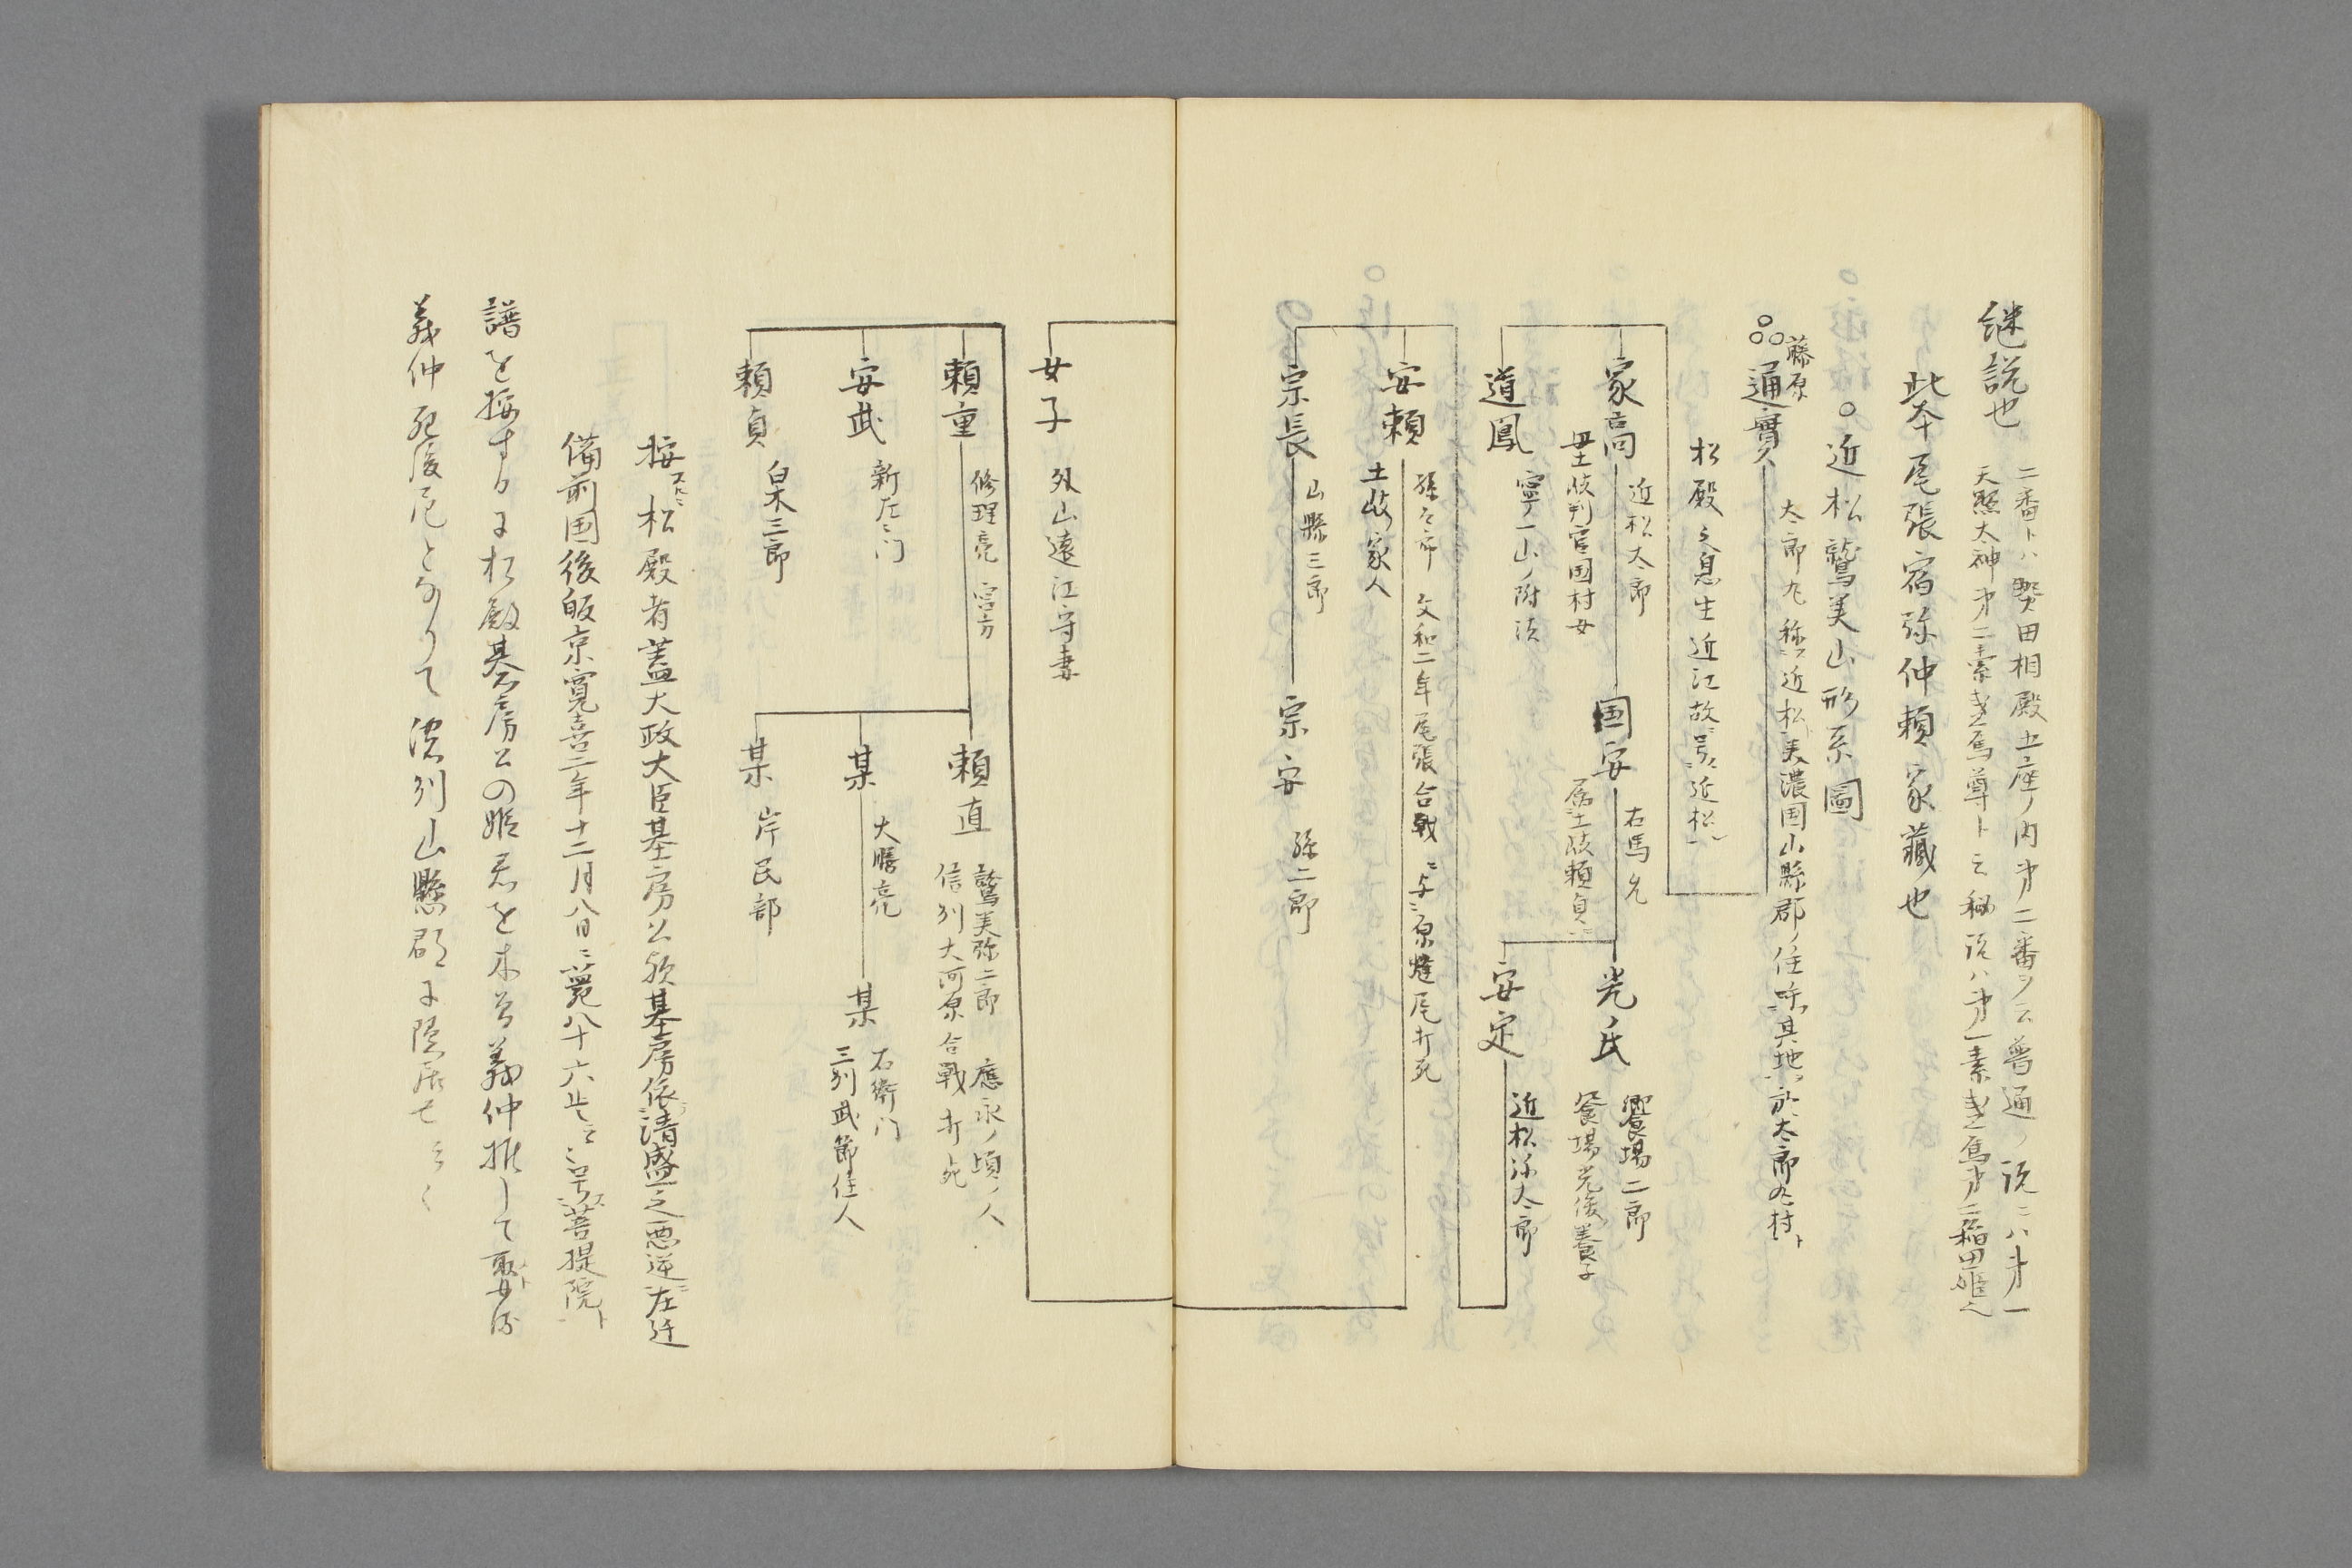 継説也
二番トハ熱田相殿五座ノ内第二番ヲ云普通ノ説ニハ第一
天照大神第二素盞烏尊ト云秘説ハ第一素盞烏第二稲田姫也
此本尾張宿弥仲頼家藏也
○近松鷲美山形系圖
藤原
通實
太郎丸稱近松美濃国山縣郡ノ住呼其地於太郎丸村ト
松殿之息生近江故号近松
家高
近松太郎
母土岐判官国村女
国安
右馬允
属土岐頼貞
光氏
饗場二郎
饗場光俊養子
安定
近松弥太郎
道鳳
寧一山ノ附法
安頼
孫太郎 文和二年尾張合戦ニ与ニ原蜂尾打死
土岐家人
宗長
山縣三郎
宗安
孫二郎
女子
外山遠江守妻
頼重
修理亮 宮方
頼直
鷲美弥二郎 應永ノ頃ノ人
信列大河原合戦打死
安武
新左ヱ門
某
大膳亮
某
右衛門
三列武節住人
頼貞
白木三郎
某
岸民部
按スルニ松殿者蓋大政大臣基房公欤基房依清盛之悪逆左迁
備前国後皈京寛喜二年十二月八日ニ薨八十六歳云号菩提院ト
譜を按するに松殿基房公の姫君を木曽義仲推して娶ト
義仲死後尼となりて濃列山懸郡に隠居せ云々